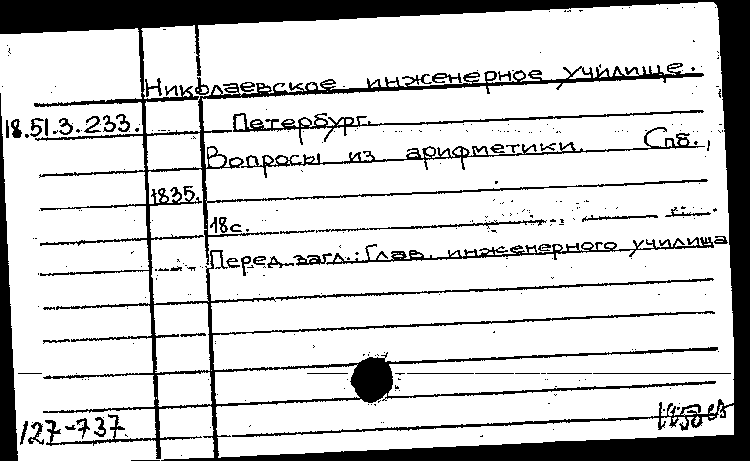 Николаевское инженерное училище.
18.51.3.233. Петербург.
Вопросы из арифметики. Спб.,
1835.
18с.
Перед загл.: Глав. инженерного училища
127-737